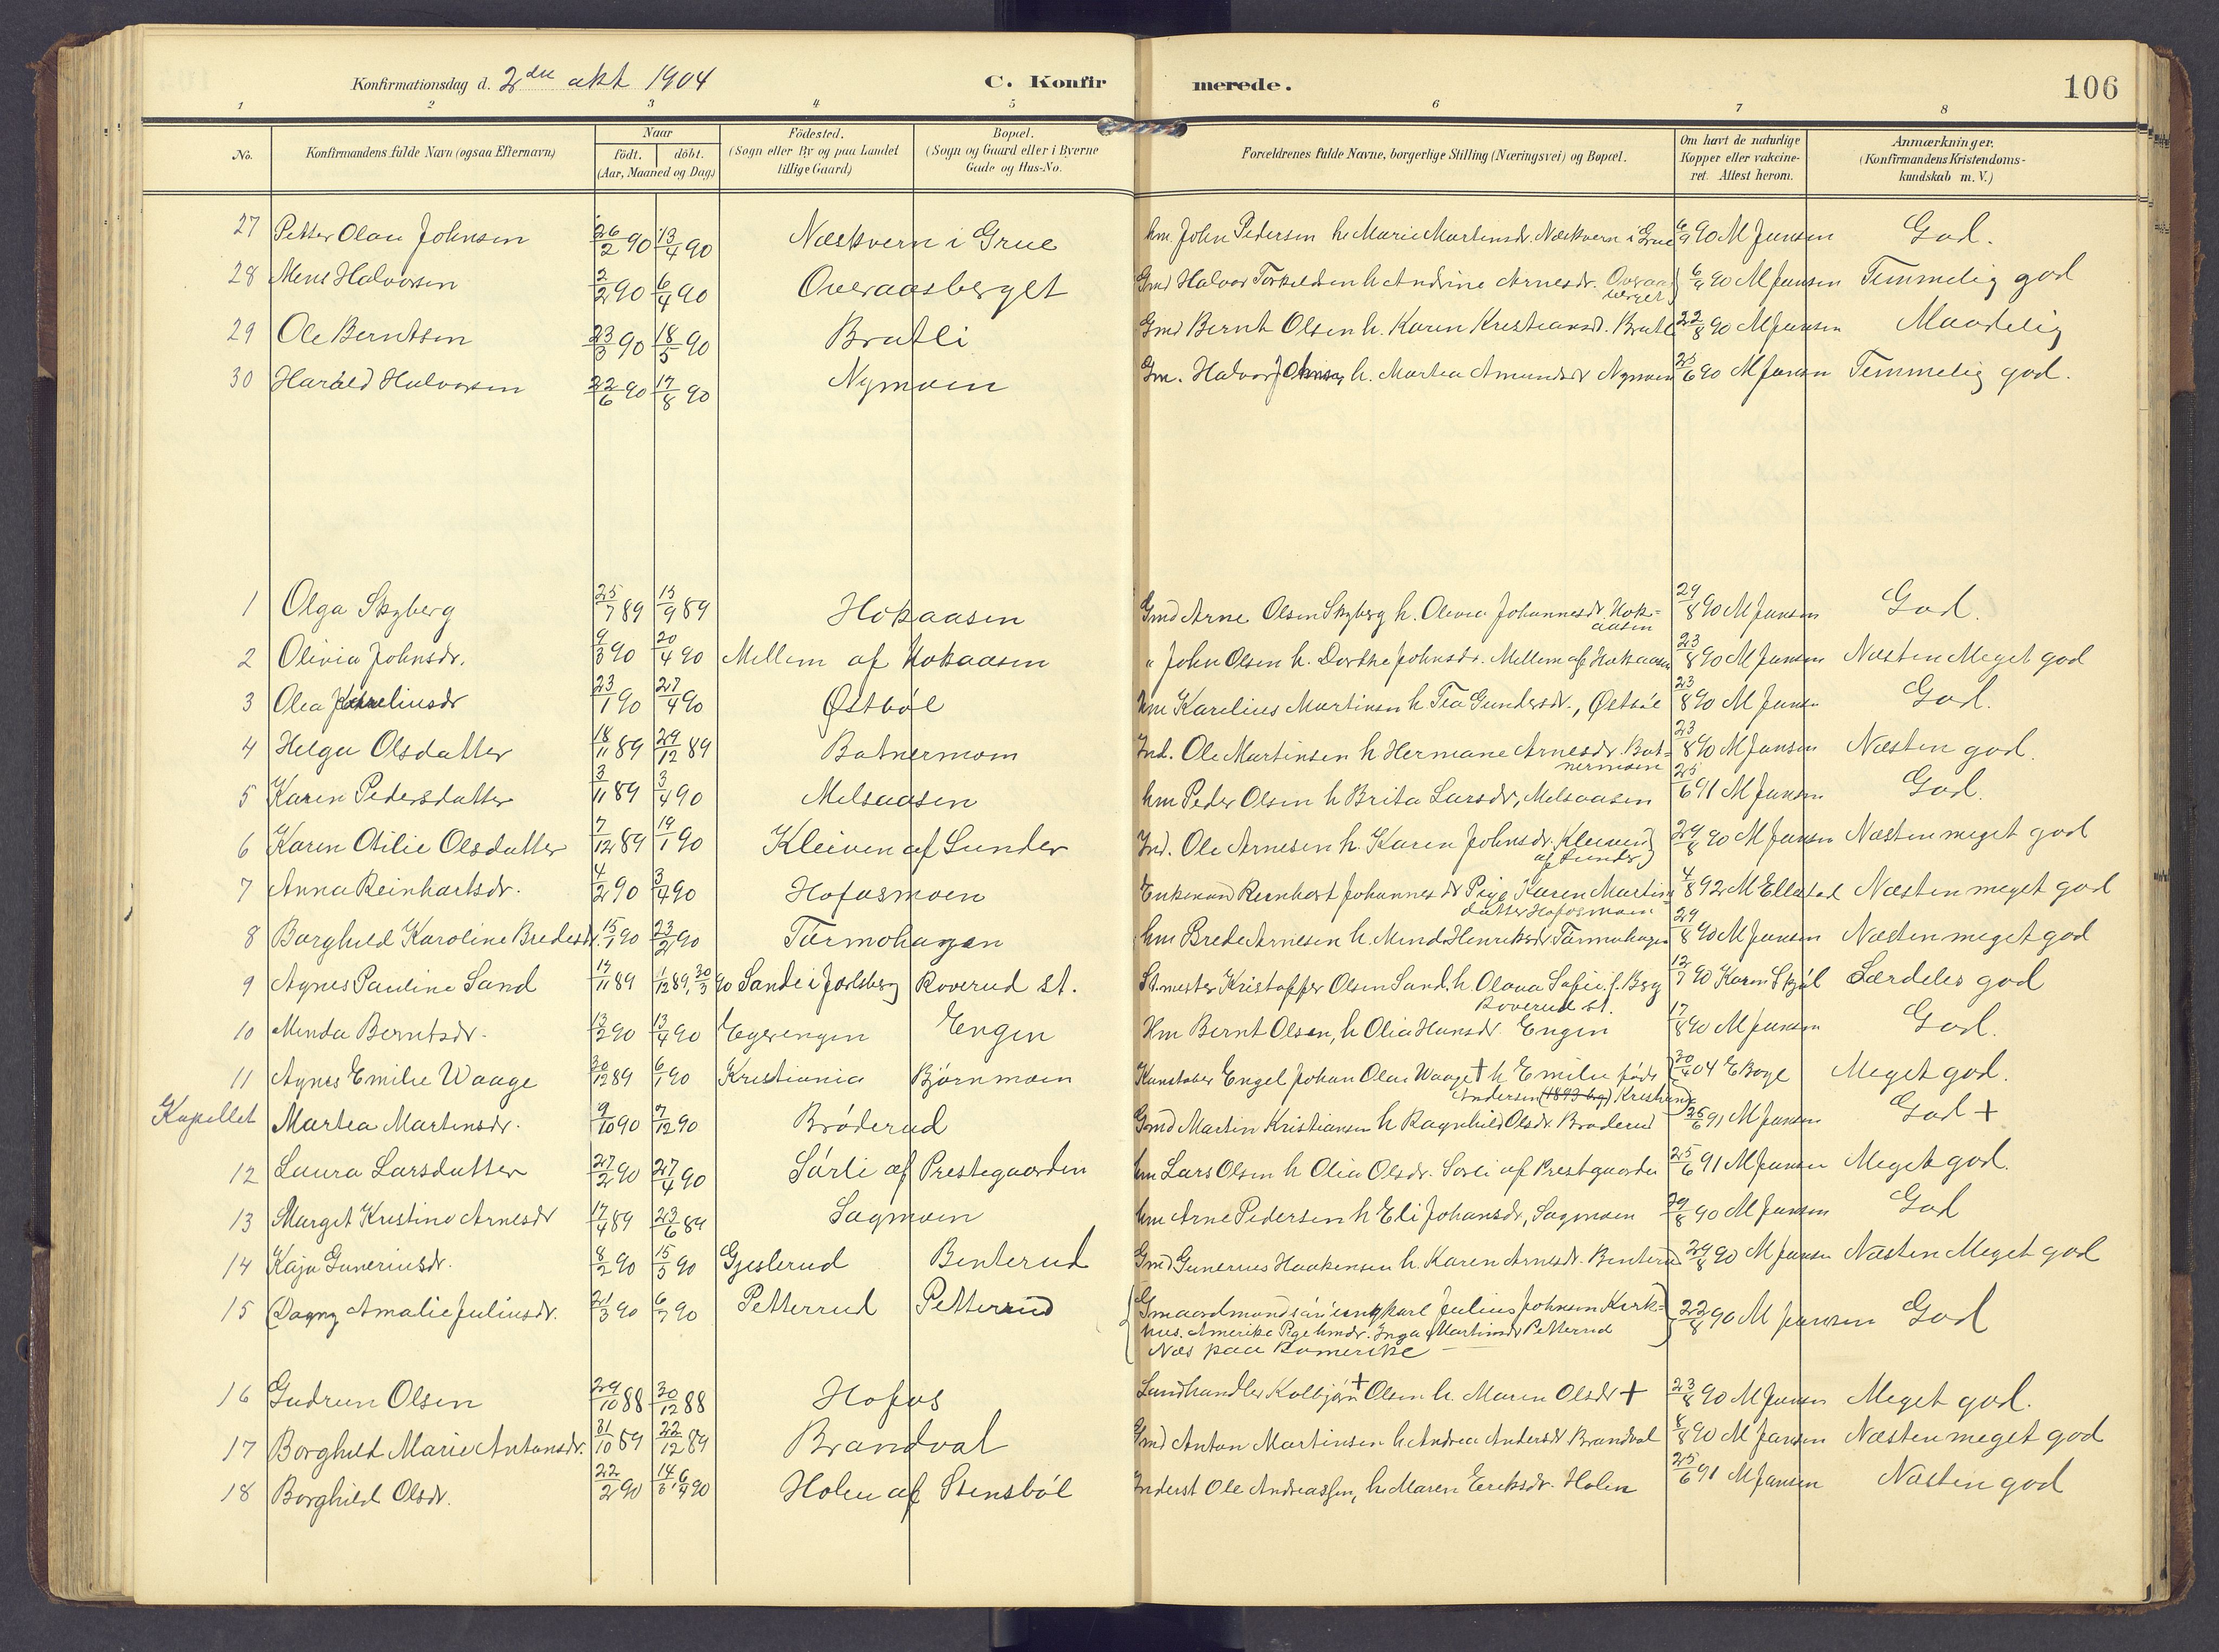 Konfirmationsdag d. 2den okt 1904 C. Konfirmerede. 106
1 2 3 4 5 6 7 8
No. Konfirmandens fulde Navn (ogsaa Efternavn) Naar födt. döbt. (Aar, Maaned og Dag.) Födested. (Sogn eller By og paa Landet tillige Gaard) Bopæl. (Sogn og Gaard eller i Byerne Gade og Hus-No. Forældrenes fulde Navne, borgerlige Stilling (Næringsvei) og Bopæl. Om havt de naturlige Kopper eller vakcineret. Attest herom. Anmærkninger. (Konfirmandens Kristendomskundskab m. V.)
27 Petter Olau Johnsen 26/2 90 13/4 90 Næskvern i Grue hm. John Pedersen h. Marie Martinsdr. Næskvern i Grue 6/9 90 M Jansen God.
28 Mens Halvorsen 2/2 90 6/4 90 Overaasberget Gmd Halvor Torkeldsen h Andrine Arnesdr. Overaasberget 6/9 90 M Jansen Temmelig god
29 Ole Berntsen 23/3 90 18/5 90 Bratli Gmd Bernt Olsen h. Karen Kristiansd. Bratli 22/8 90 M Jansen Maadelig
30 Harald Halvorsen 22/6 90 17/8 90 Nymoen Gm. Halvor Johnsen h. Martea Amundsdr Nymoen 25/6 90 M Jansen Temmelig god.
1 Olga Skyberg 25/7 89 15/9 89 Hokaasen Gmd Arne Olsen Skyberg h. Olivia Johannesdr. Hokaasen 29/8 90 M Jansen God.
2 Olivia Johnsdr. 9/3 90 20/4 90 Mellem af Hokaasen " John Olsen h. Dorthe Johnsdr. Mellem af Hokaasen 23/8 90 M Jansen Næsten Meget god
3 Olea Kareliusdr 23/1 90 27/4 90 Østböl hm Karelius Martinsen h Tea Gundersdr., Østböl 23/8 90 M Jansen God.
4 Helga Olsdatter 18/11 89 29/12 89 Batnermoen Ind. Ole Martinsen h Hermane Arnesdr. Batnermoen 23/8 90 M Jansen Næsten god.
5 Karen Pedersdatter 3/11 89 3/4 90 Melsaasen hm Peder Olsen h Brita Larsdr, Melsaasen 25/6 91 M Jansen God.
6 Karen Otilie Olsdatter 7/12 89 19/1 90 Kleiven af Sunder Ind. Ole Arnesen h. Karen Johnsdr. Kleiven af Sunder 29/8 90 M Jansen Næsten meget god
7 Anna Reinhartsdr. 4/2 90 3/4 90 Hofosmoen Enkemand Reinhart Johannes dr Pige Karen Martinsdatter Hofosmoen 4/8 92 M Ellestad Næsten meget god
8 Borghild Karoline Bredesdr. 15/1 90 23/2 90 Tarmohagen hm Brede Arnesen h. Minda Henriksdr Tarmohagen 29/8 90 M Jansen Næsten meget god
9 Agnes Pauline Sand 19/11 89 1/12 89, 30/3 90 Sande i Jarlsberg Roverud st. St.mester Kristoffer Olsen Sand. h. Olava Sofie f. Berg Roverud st. 12/7 90 Karen Skjöl Særdeles god
10 Minda Berntsdr. 13/2 90 13/4 90 Egerengen Engen Hm Bernt Olsen, h Olia Hansdr. Engen 17/8 90 M Jansen God.
11 Agnes Emilie Waage 30/12 89 6/1 90 Kristiania Björnmoen Konstabel Engel Johan Olai Waage † h Emilie födt Andersen (1893 bg) Kristiania 30/4 04 E Boye Meget god.
Kapellet Martea Martinsdr. 9/10 90 7/12 90 Bröderud Gmd Martin Kristiansen h Ragnhild Olsdr. Bröderud 25/6 91 M Jansen God +
12 Laura Larsdatter 27/2 90 27/4 90 Sörli af Prestegaarden hm Lars Olsen h Olia Olsdr. Sörli af Prestgaarden 25/6 91 M Jansen Meget god.
13 Marget Kristine Arnesdr 17/4 89 23/6 89 Sagmoen hm Arne Pedersen h Eli Johansdr, Sagmoen 29/8 90 M Jansen God
14 Kaja Guneriusdr. 8/2 90 15/5 90 Gjeslerud Benterud Gmd Gunerius Haakensen h. Karen Arnesdr. Benterud 29/8 90 M Jansen Næsten Meget god
15 Dagny Amalie Juliusdr. 21/3 90 6/7 90 Petterrud Petterrud Gmaardmandssön ungkarl Julius Johnsen Kirkhus. Amerika Pige hmdr. Inga Martinsdr Petterrud Næs paa Romerike 22/8 90 M Jansen God
16 Gudrun Olsen 29/10 88 30/12 88 Hofos Landhandler Kolbjörn † Olsen h. Maren Olsdr † 23/8 90 M Jansen Meget god.
17 Borghild Marie Antonsdr. 31/10 89 22/12 89 Brandval Gmd Anton Martinsen h Andrea Andersdr Brandval 8/8 90 M Jansen Næsten meget god
18 Borghild Olsdr. 22/2 90 14/3 6/4 90 Holen af Stensböl Inderst Ole Andreassen, h. Maren Eriksdr. Holen 25/6 91 M Jansen Næsten god